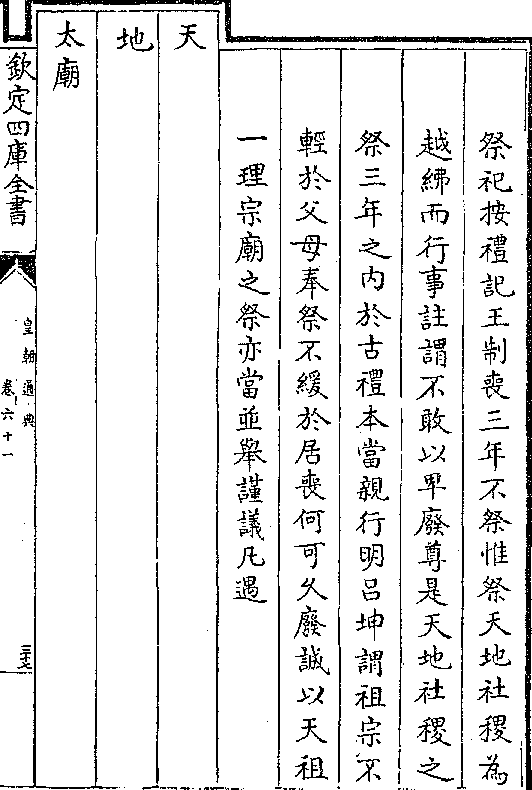 祭祀按禮記王制喪三年不祭惟祭天地社稷為
越紼而行事註謂不敢以卑廢尊是天地社稷之
祭三年之內於古禮本當親行明呂坤謂祖宗不
輕於父母奉祭不緩於居喪何可久廢誠以天祖
一理宗廟之祭亦當並舉謹議凡遇
天
地
太廟
欽定四庫全書
皇朝通典
卷六十一
三十七